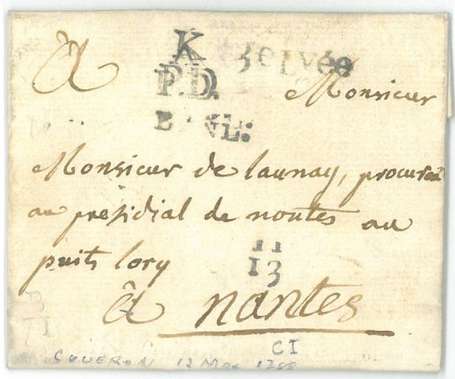 K 3e Lvée
P.D.
BANL:
À Monsieur
Monsieur de launay, procureur
au présidial de nantes au
puits lory
11
13
à nantes
CI
COUERON 12 Mai